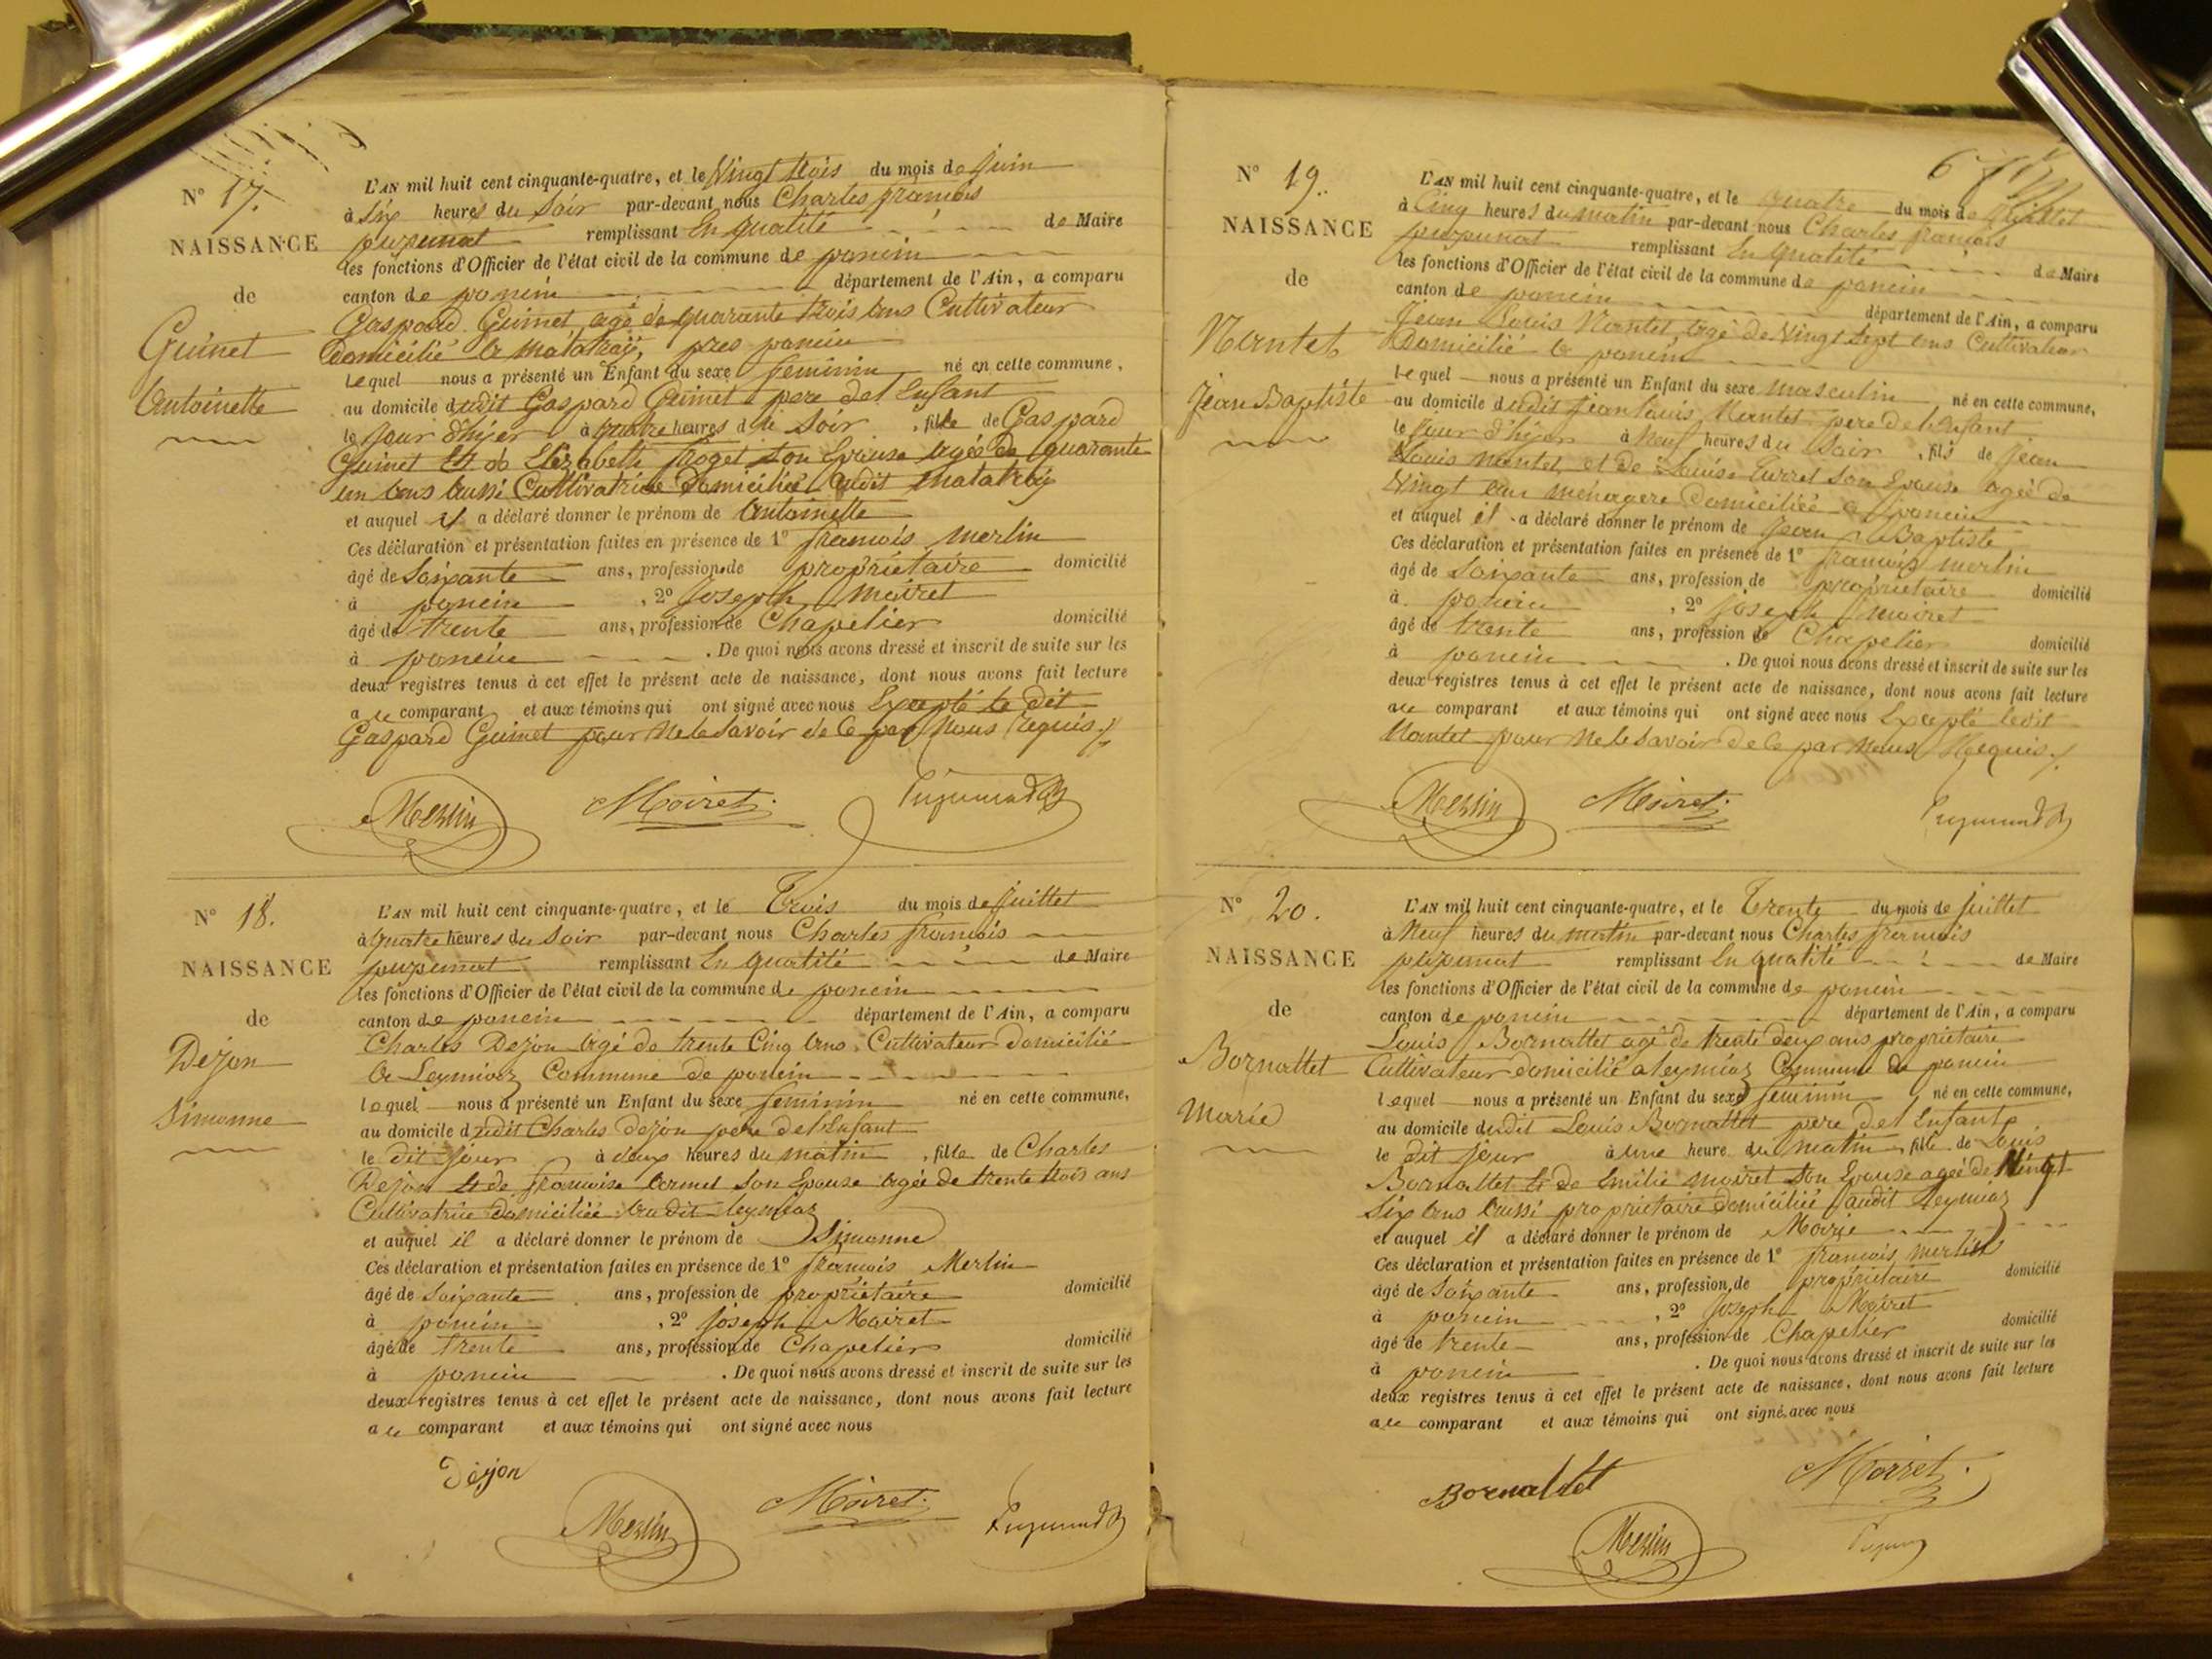 N° 17.
NAISSANCE
de
Guinet
Antoinette
L'AN mil huit cent cinquante-quatre, et le Vingt trois du mois de juin
à Six heures du Soir par-devant nous Charles françois
puzunat remplissant En qualité de Maire
les fonctions d'Officier de l'état civil de la commune de poncin
canton de poncin département de l'Ain, a comparu
Gaspard Guinet agé de quarante trois ans Cultivateur
domicilié a près poncin
lequel nous a présenté un Enfant du sexe feminin né en cette commune,
au domicile dudit Gaspard Guinet pere del Enfant
le jour d'hier à quatre heures du Soir, fille de Gaspard
Guinet Et de Elizabeth son Epouse agée de quarante
un ans aussi Cultivatrice Domiciliée audit
et auquel il a déclaré donner le prénom de Antoinette
Ces déclaration et présentation faites en présence de 1° françois Merlin
âgé de Soixante ans, profession de propriétaire domicilié
à poncin, 2° Joseph Moiret
âgé de trente ans, profession de Chapelier domicilié
à poncin. De quoi nous avons dressé et inscrit de suite sur les
deux registres tenus à cet effet le présent acte de naissance, dont nous avons fait lecture
au comparant et aux témoins qui ont signé avec nous Excepté le dit
Gaspard Guinet pour ne le savoir de ce par Nous requis
Merlin Moiret
N° 18.
NAISSANCE
de
Dejon
Simonne
L'AN mil huit cent cinquante-quatre, et le Trois du mois de juillet
à quatre heures du Soir par-devant nous Charles françois
puzunat remplissant En qualité de Maire
les fonctions d'Officier de l'état civil de la commune de poncin
canton de poncin département de l'Ain, a comparu
Charles Dejon agé de trente Cinq ans Cultivateur domicilié
a Leymiaz Commune de poncin
lequel nous a présenté un Enfant du sexe feminin né en cette commune,
au domicile dudit Charles dejon pere de l'Enfant
le dit jour à deux heures du matin, fille de Charles
Dejon et de françoise son Epouse agée de trente trois ans
Cultivatrice domiciliée au dit leymiaz
et auquel il a déclaré donner le prénom de Simonne
Ces déclaration et présentation faites en présence de 1° françois Merlin
âgé de Soixante ans, profession de propriétaire domicilié
à poncin, 2° Joseph Moiret
âgé de trente ans, profession de Chapelier domicilié
à poncin. De quoi nous avons dressé et inscrit de suite sur les
deux registres tenus à cet effet le présent acte de naissance, dont nous avons fait lecture
au comparant et aux témoins qui ont signé avec nous
Dejon
Merlin Moiret
N° 19.
NAISSANCE
de
Nantet
Jean Baptiste
L'AN mil huit cent cinquante-quatre, et le quatre du mois de juillet
à Cinq heures du matin par-devant nous Charles françois
puzunat remplissant En qualité de Maire
les fonctions d'Officier de l'état civil de la commune de poncin
canton de poncin département de l'Ain, a comparu
Jean Louis Nantet agé de Vingt Sept ans Cultivateur
Domicilié a poncin
lequel nous a présenté un Enfant du sexe masculin né en cette commune,
au domicile dudit Jean Louis Nantet pere de l'Enfant
le jour d'hier à Neuf heures du Soir, fils de Jean
Louis Nantet et de Louise son Epouse agée de
Vingt ans ménagere domiciliée a poncin
et auquel il a déclaré donner le prénom de Jean Baptiste
Ces déclaration et présentation faites en présence de 1° françois Merlin
âgé de Soixante ans, profession de propriétaire domicilié
à poncin, 2° Joseph Moiret
âgé de trente ans, profession de Chapelier domicilié
à poncin. De quoi nous avons dressé et inscrit de suite sur les
deux registres tenus à cet effet le présent acte de naissance, dont nous avons fait lecture
au comparant et aux témoins qui ont signé avec nous Excepté ledit
Nantet pour ne le savoir de ce par nous Requis
Merlin Moiret
N° 20.
NAISSANCE
de
Bornattet
Marie
L'AN mil huit cent cinquante-quatre, et le Trente du mois de juillet
à Neuf heures du matin par-devant nous Charles françois
puzunat remplissant En qualité de Maire
les fonctions d'Officier de l'état civil de la commune de poncin
canton de poncin département de l'Ain, a comparu
Louis Bornattet agé de trente deux ans propriétaire
Cultivateur domicilié a leymiaz Commune de poncin
lequel nous a présenté un Enfant du sexe feminin né en cette commune,
au domicile dudit Louis Bornattet pere del Enfant
le dit jour à une heure du matin, fille de Louis
Bornattet et de Emilie moiret son Epouse agée de Vingt
six ans aussi propriétaire domiciliée audit leymiaz
et auquel il a déclaré donner le prénom de Marie
Ces déclaration et présentation faites en présence de 1° françois Merlin
âgé de Soixante ans, profession de propriétaire domicilié
à poncin, 2° Joseph Moiret
âgé de trente ans, profession de Chapelier domicilié
à poncin. De quoi nous avons dressé et inscrit de suite sur les
deux registres tenus à cet effet le présent acte de naissance, dont nous avons fait lecture
au comparant et aux témoins qui ont signé avec nous
Bornattet Moiret
Merlin